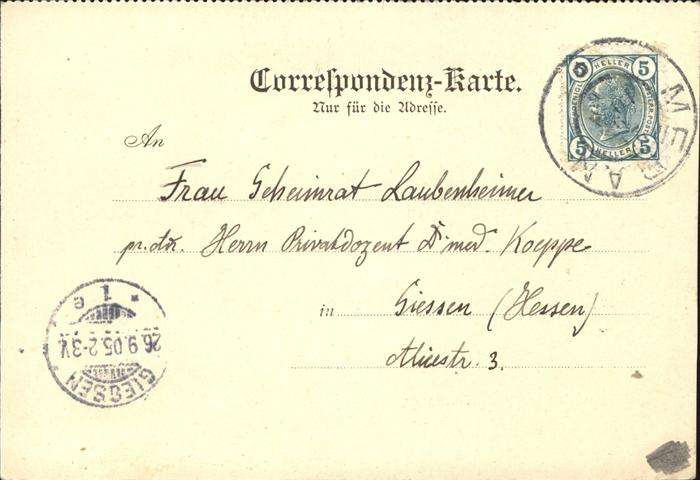 Correspondenz-Karte.
Nur für die Adresse.
5 HELLER 5
5 HELLER 5
MERAN
An
Frau Geheimrat Laubenheimer
pr. adr. Herrn Privatdozent Dr med. Koeppe
in Giessen (Hessen)
Alicestr. 3.
* 1 e
26.9.05.2-3V.
GIESSEN